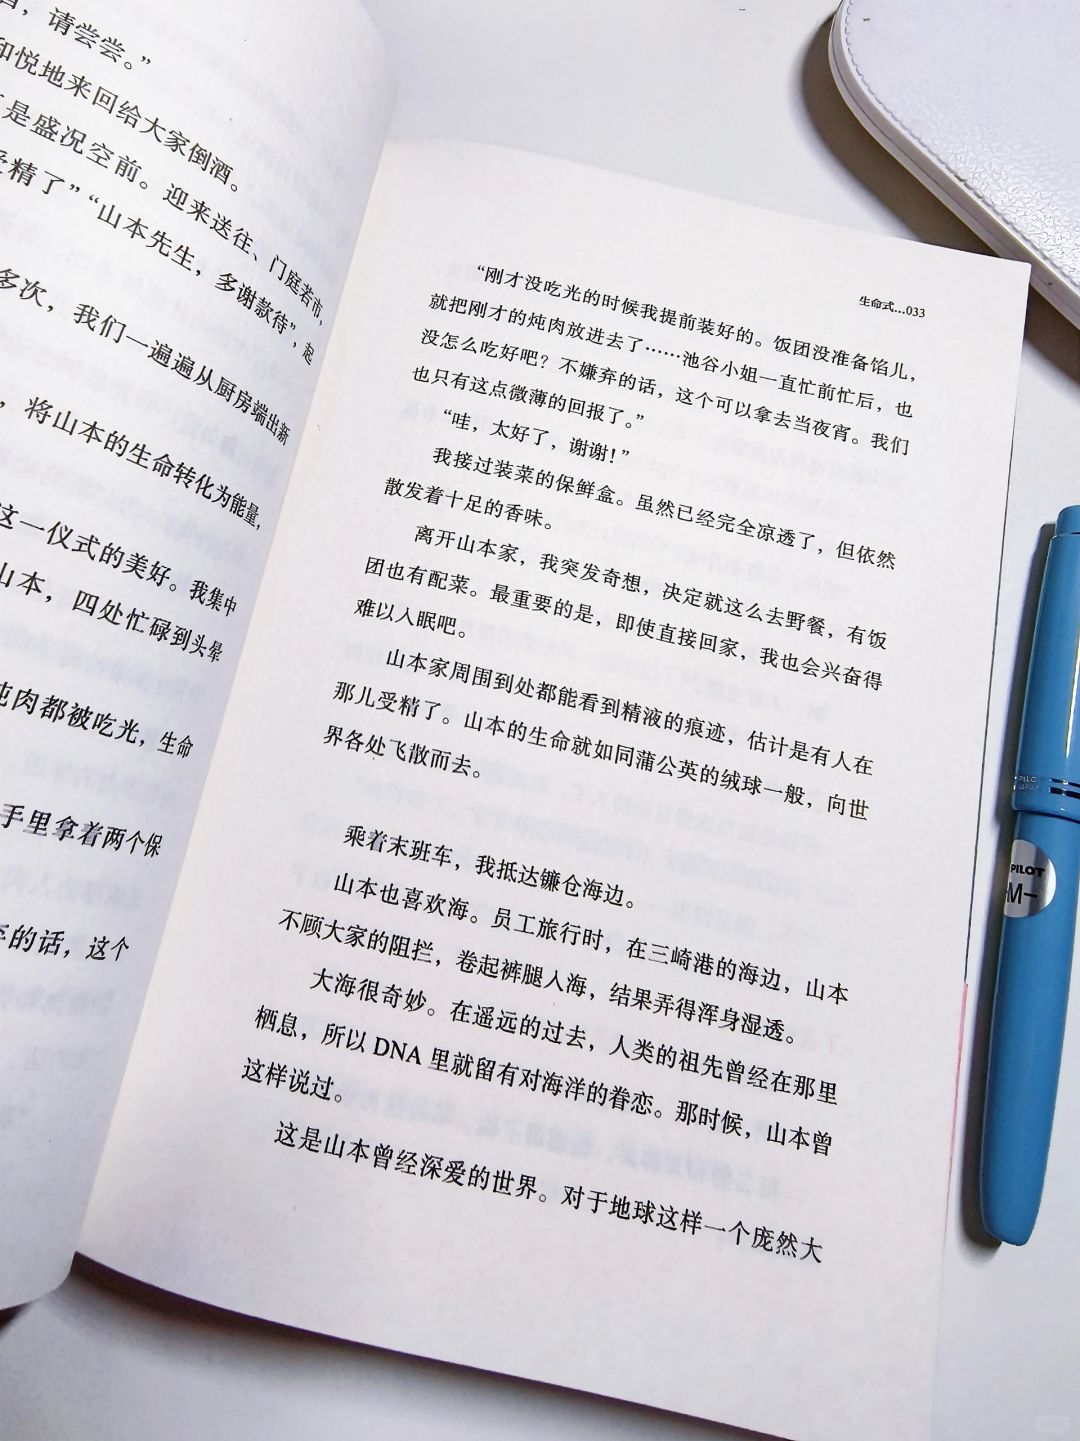 ，请尝尝。”
和悦地来回给大家倒酒。
是盛况空前。迎来送往、门庭若市，
受精了”“山本先生，多谢款待”，起
多次，我们一遍遍从厨房端出新
，将山本的生命转化为能量，
这一仪式的美好。我集中
山本，四处忙碌到头晕
炖肉都被吃光，生命
手里拿着两个保
弃的话，这个
生命式…033
“刚才没吃光的时候我提前装好的。饭团没准备馅儿，
就把刚才的炖肉放进去了……池谷小姐一直忙前忙后，也
没怎么吃好吧？不嫌弃的话，这个可以拿去当夜宵。我们
也只有这点微薄的回报了。”
“哇，太好了，谢谢！”
我接过装菜的保鲜盒。虽然已经完全凉透了，但依然
散发着十足的香味。
离开山本家，我突发奇想，决定就这么去野餐，有饭
团也有配菜。最重要的是，即使直接回家，我也会兴奋得
难以入眠吧。
山本家周围到处都能看到精液的痕迹，估计是有人在
那儿受精了。山本的生命就如同蒲公英的绒球一般，向世
界各处飞散而去。
乘着末班车，我抵达镰仓海边。
山本也喜欢海。员工旅行时，在三崎港的海边，山本
不顾大家的阻拦，卷起裤腿入海，结果弄得浑身湿透。
大海很奇妙。在遥远的过去，人类的祖先曾经在那里
栖息，所以 DNA 里就留有对海洋的眷恋。那时候，山本曾
这样说过。
这是山本曾经深爱的世界。对于地球这样一个庞然大
PILOT
JAPAN
PILOT
-M-